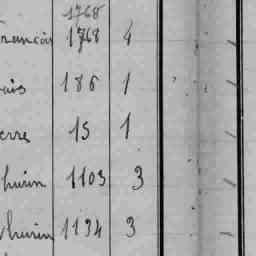 1768
rancois 1768 4
ais 186 1
erre 15 1
hurin 1103 3
hurin 1134 3